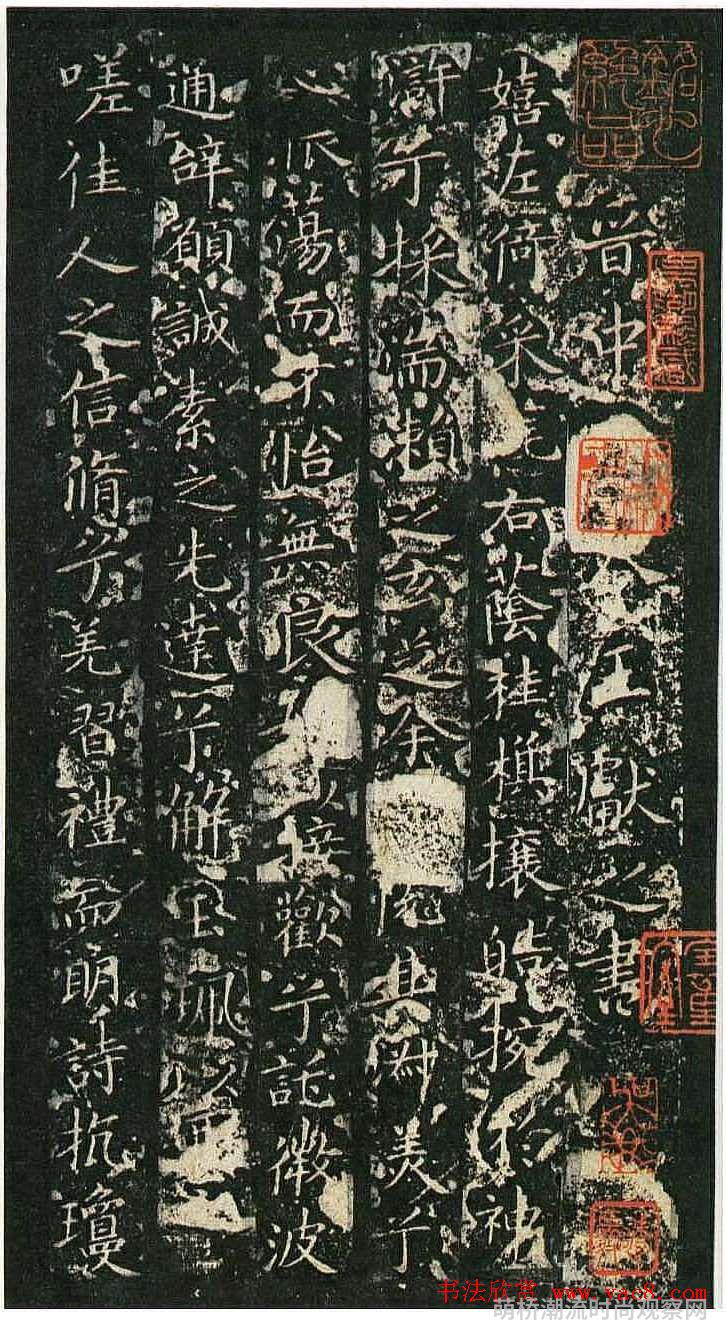 晋中令王獻之書
嬉左倚采旄右蔭桂旗攘皓捥於神
滸兮採湍瀨之玄芝余悅其淑美兮
心振蕩而不怡無良以接歡兮託微波
通辭願誠素之先達兮解玉珮以要之
嗟佳人之信脩兮羌習禮而明詩抗瓊
书法欣赏 www.yac8.com
萌桥潮流时尚观察网